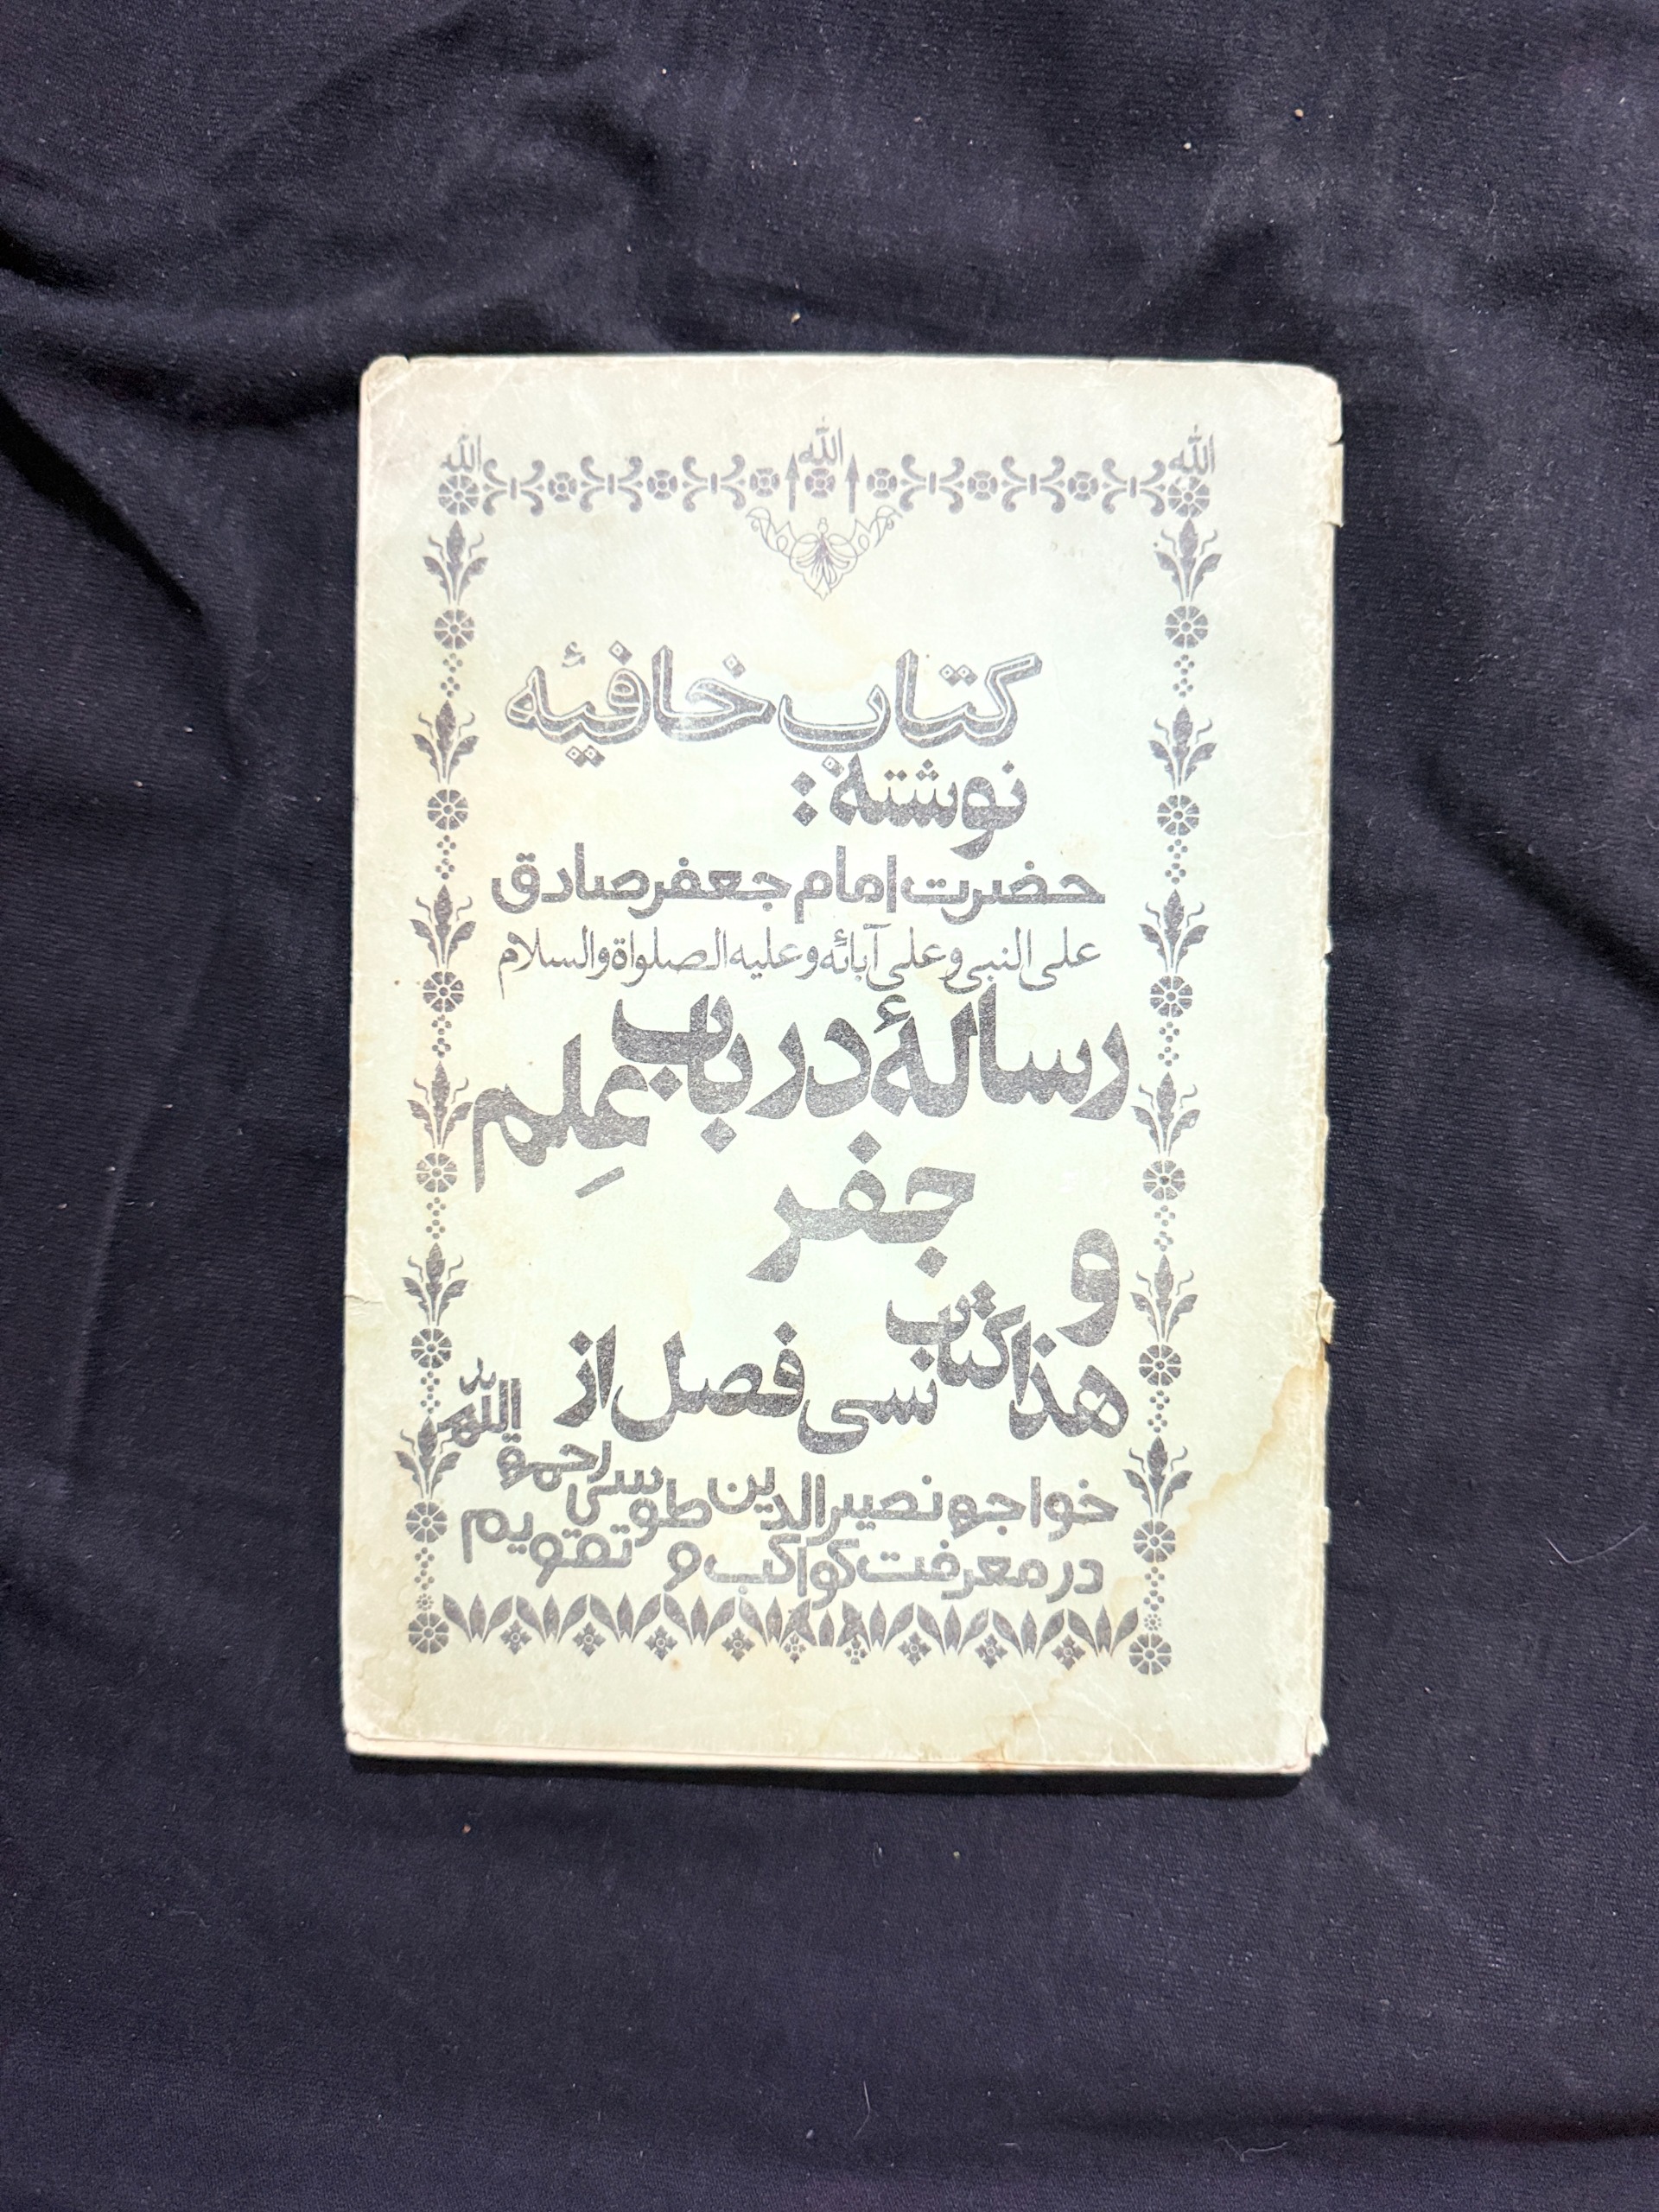 الله الله الله
کتاب خافیهٔ
نوشته:
حضرت امام جعفر صادق
علی النبی و علی آبائه و علیه الصلواة والسلام
رسالهٔ در باب علم
جفر
و
هذا کتاب سی فصل از
خواجه نصیر الدین طوسی رحمة الله
در معرفت کواکب و تقویم